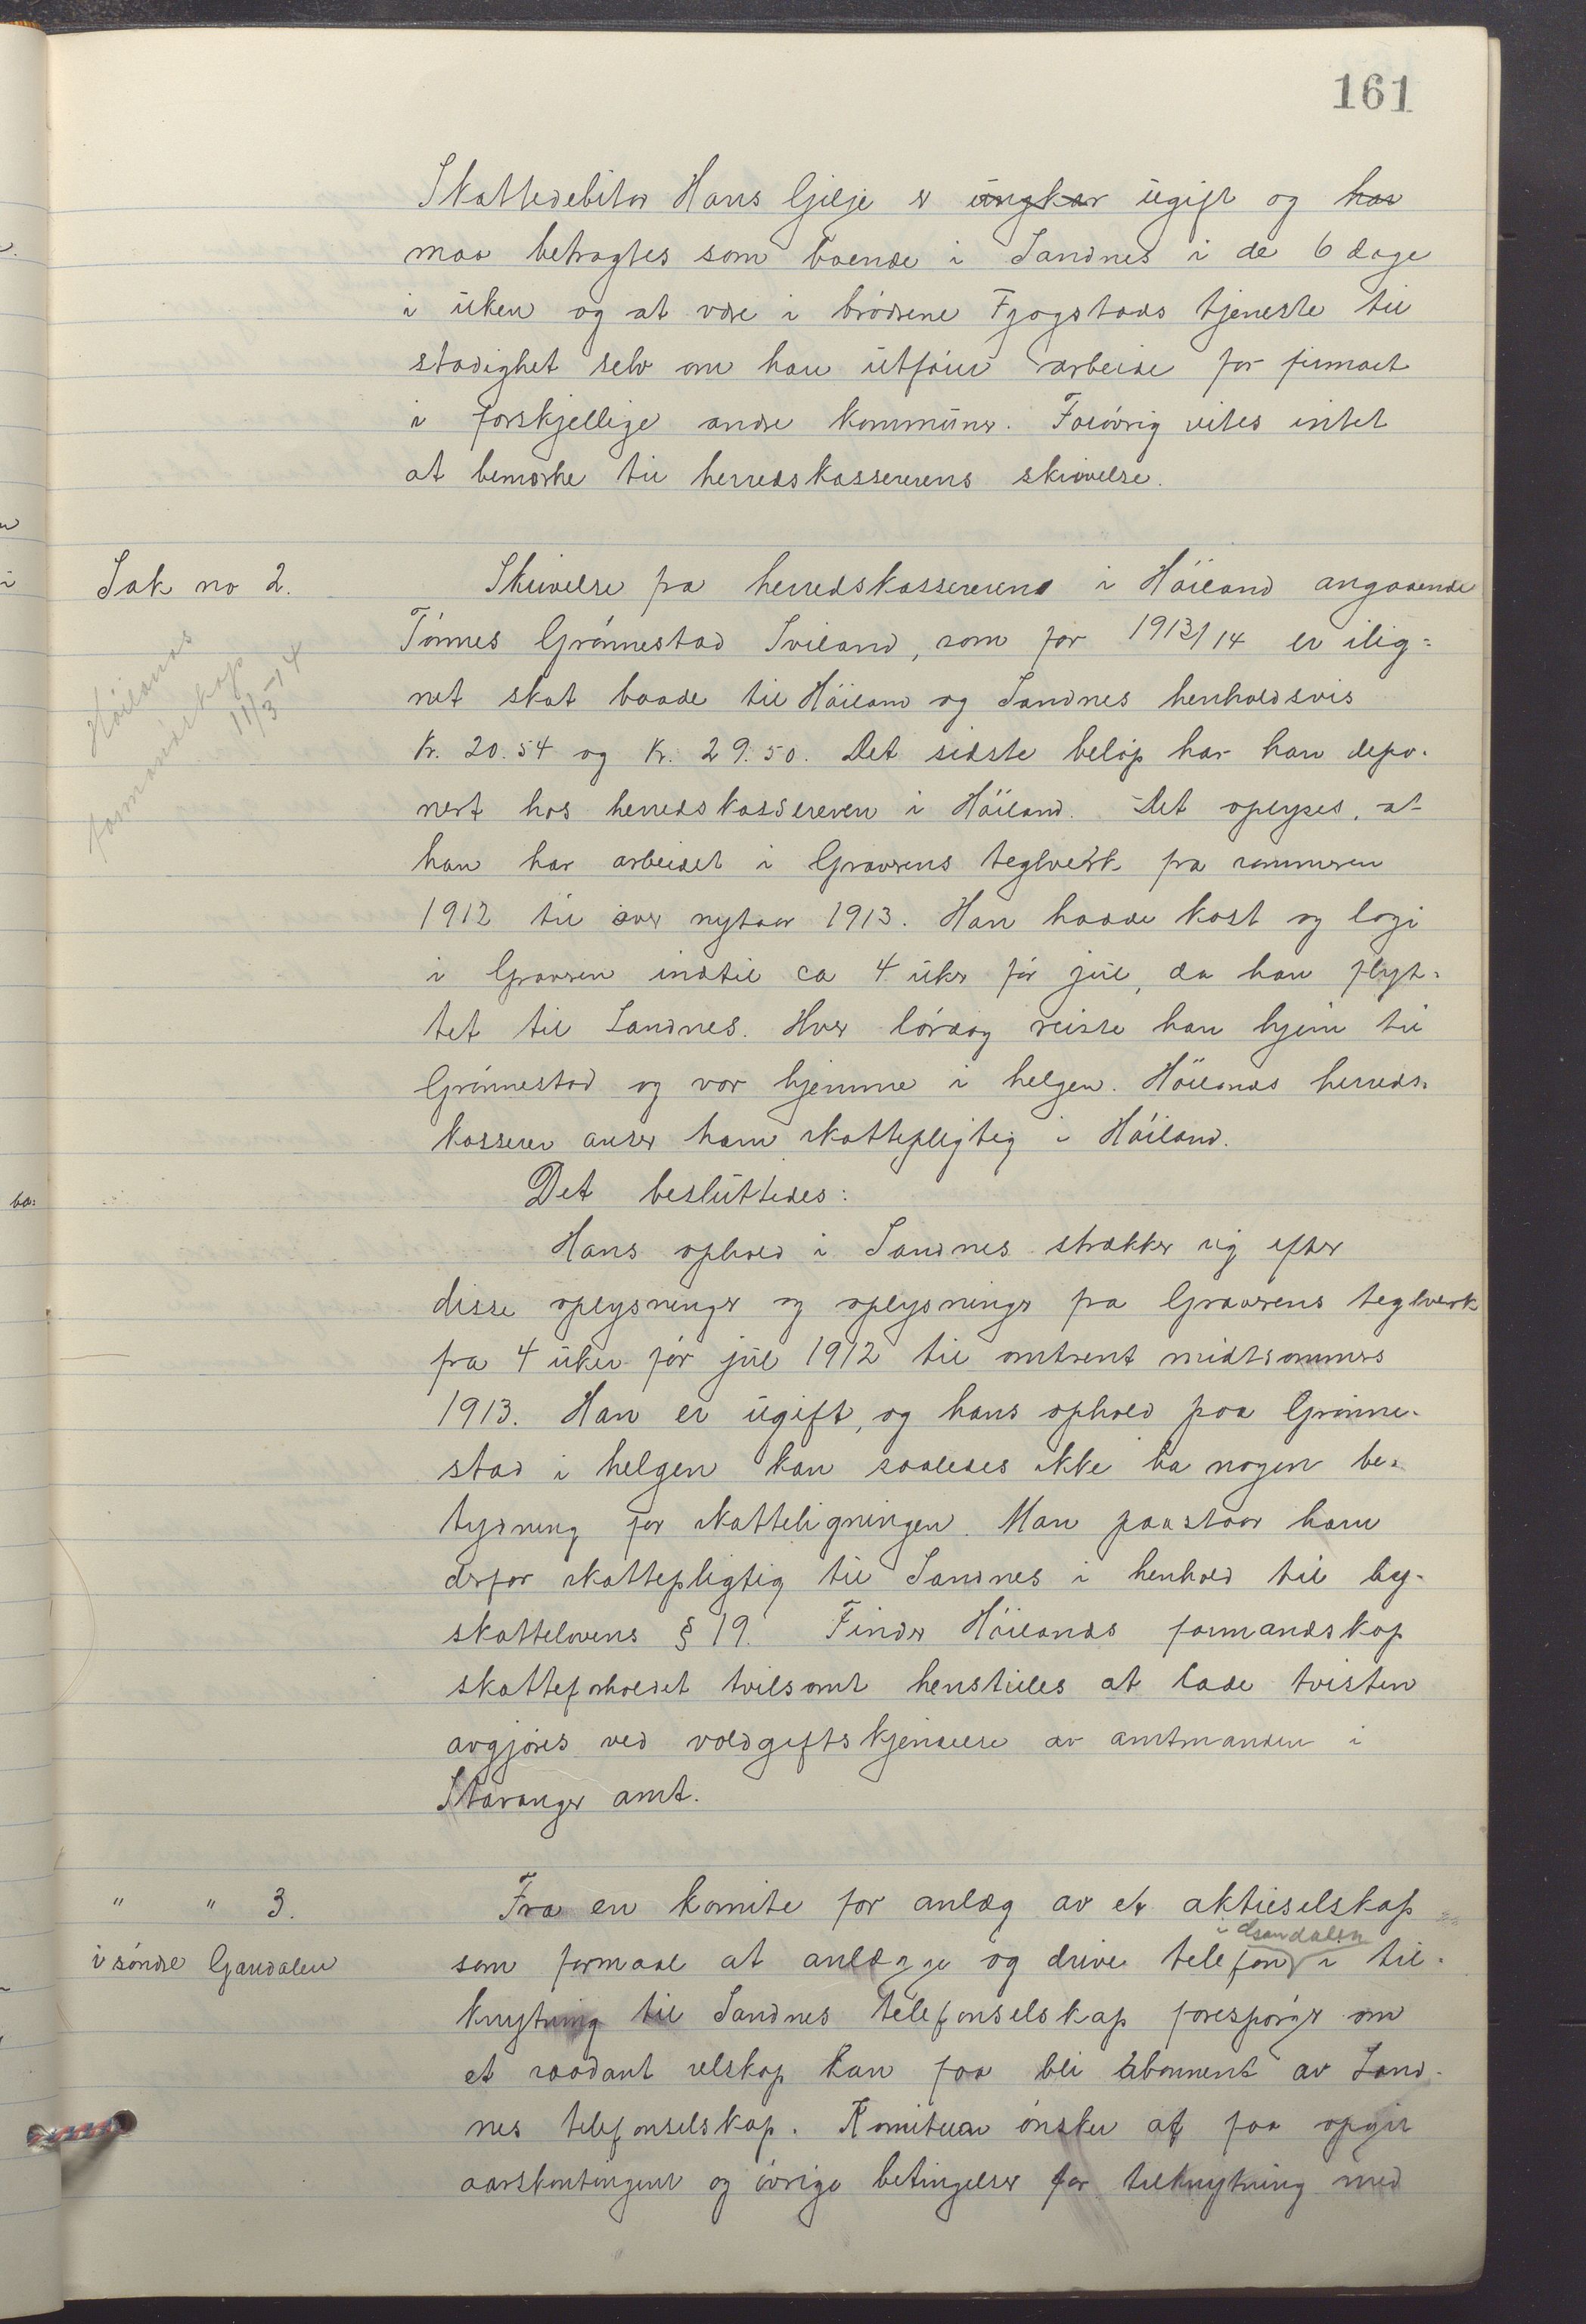 161
Skattedebitor Hans Gjilje er ungkar ugift og har
maa betragtes som boende i Sandnes i de 6 dage
i uken og at være i brødrene Fjogstads tjeneste til
stadighet selv om han utfører arbeide for firmaet
i forskjellige andre kommuner. Forøvrig vites intet
at bemerke til herredskassererens skrivelse.
Sak no 2.
Høilands
formandskap
11/3-14
Skrivelse fra herredskassereren i Høiland angaaende
Tønnes Grønnestad Sviland, som for 1913/14 er ilig=
net skat baade til Høiland og Sandnes henholdsvis
kr. 20.54 og kr. 29.50. Det sidste beløp har han depo-
nert hos herredskassereren i Höiland. Det oplyses, at
han har arbeidet i Graverens teglverk fra sommeren
1912 til over nytaar 1913. Han hadde kost og logi
i Graveren indtil ca 4 uker før jul, da han flyt-
tet til Sandnes. Hver lørdag reiste han hjem til
Grønnestad og var hjemme i helgen. Höilands herreds-
kasserer anser ham skattepligtig i Høiland.
Det besluttedes:
Hans ophold i Sandnes strækker sig efter
disse oplysninger og oplysninger fra Graverens teglverk
fra 4 uker før jul 1912 til omtrent midtsommers
1913. Han er ugift, og hans ophold paa Grønne-
stad i helgen kan saaledes ikke ha nogen be-
tydning for skatteligningen. Man paastaar ham
derfor skattepligtig til Sandnes i henhold til by-
skattelovens § 19. Finder Høilands formandskap
skatteforholdet tvilsomt henstilles at lade tvisten
avgjøres ved voldgiftskjendelse av amtmanden i
Stavanger amt.
" " 3.
i søndre Gandalen
Fra en komite for anlæg av et aktieselskap
i Gandalen
som formaal at anlægge og drive telefon i til-
knytning til Sandnes telefonselskap forespørger om
et saadant selskap kan faa bli abonnent av Sand-
nes telefonselskap. Komiteen ønsker at faa opgit
aarskontingent og øvrige betingelser for tilknytning med